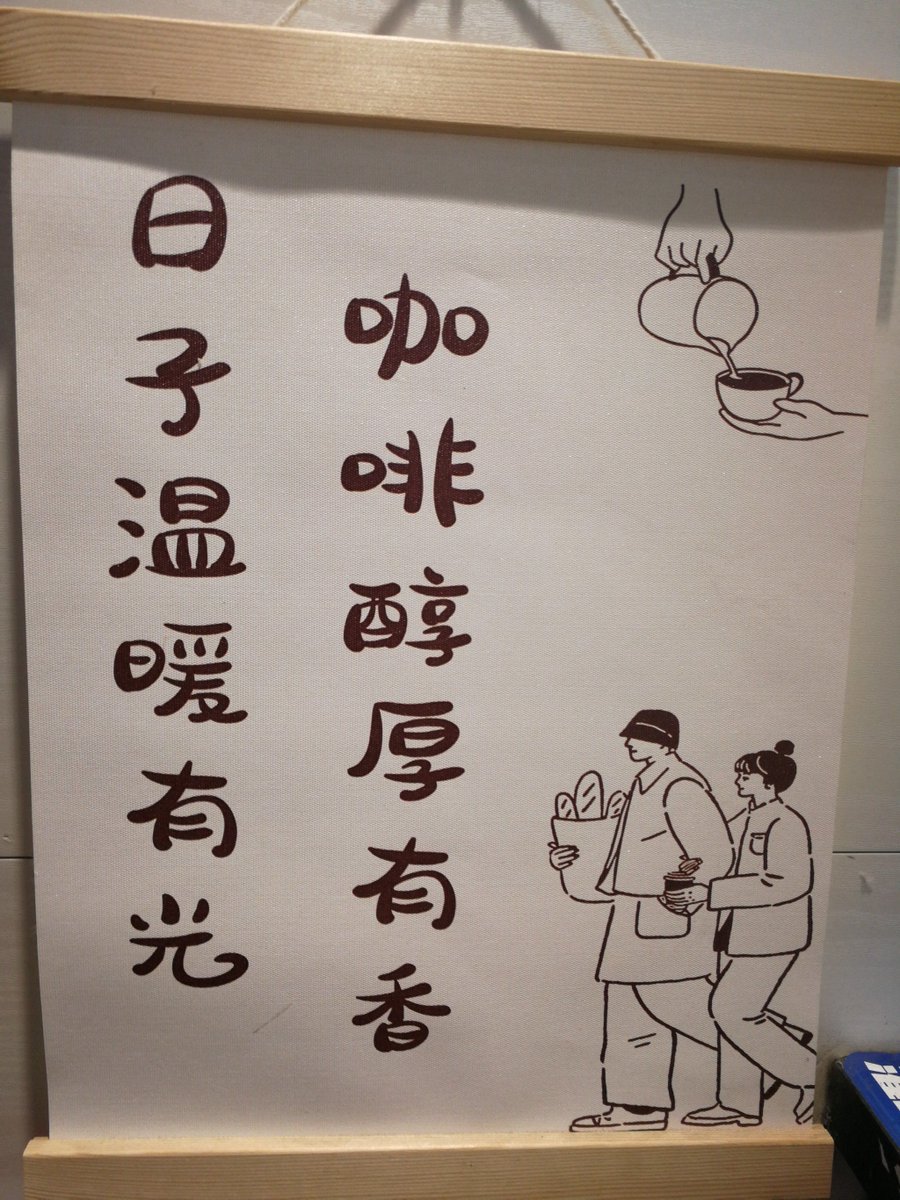 日子温暖有光
咖啡醇厚有香